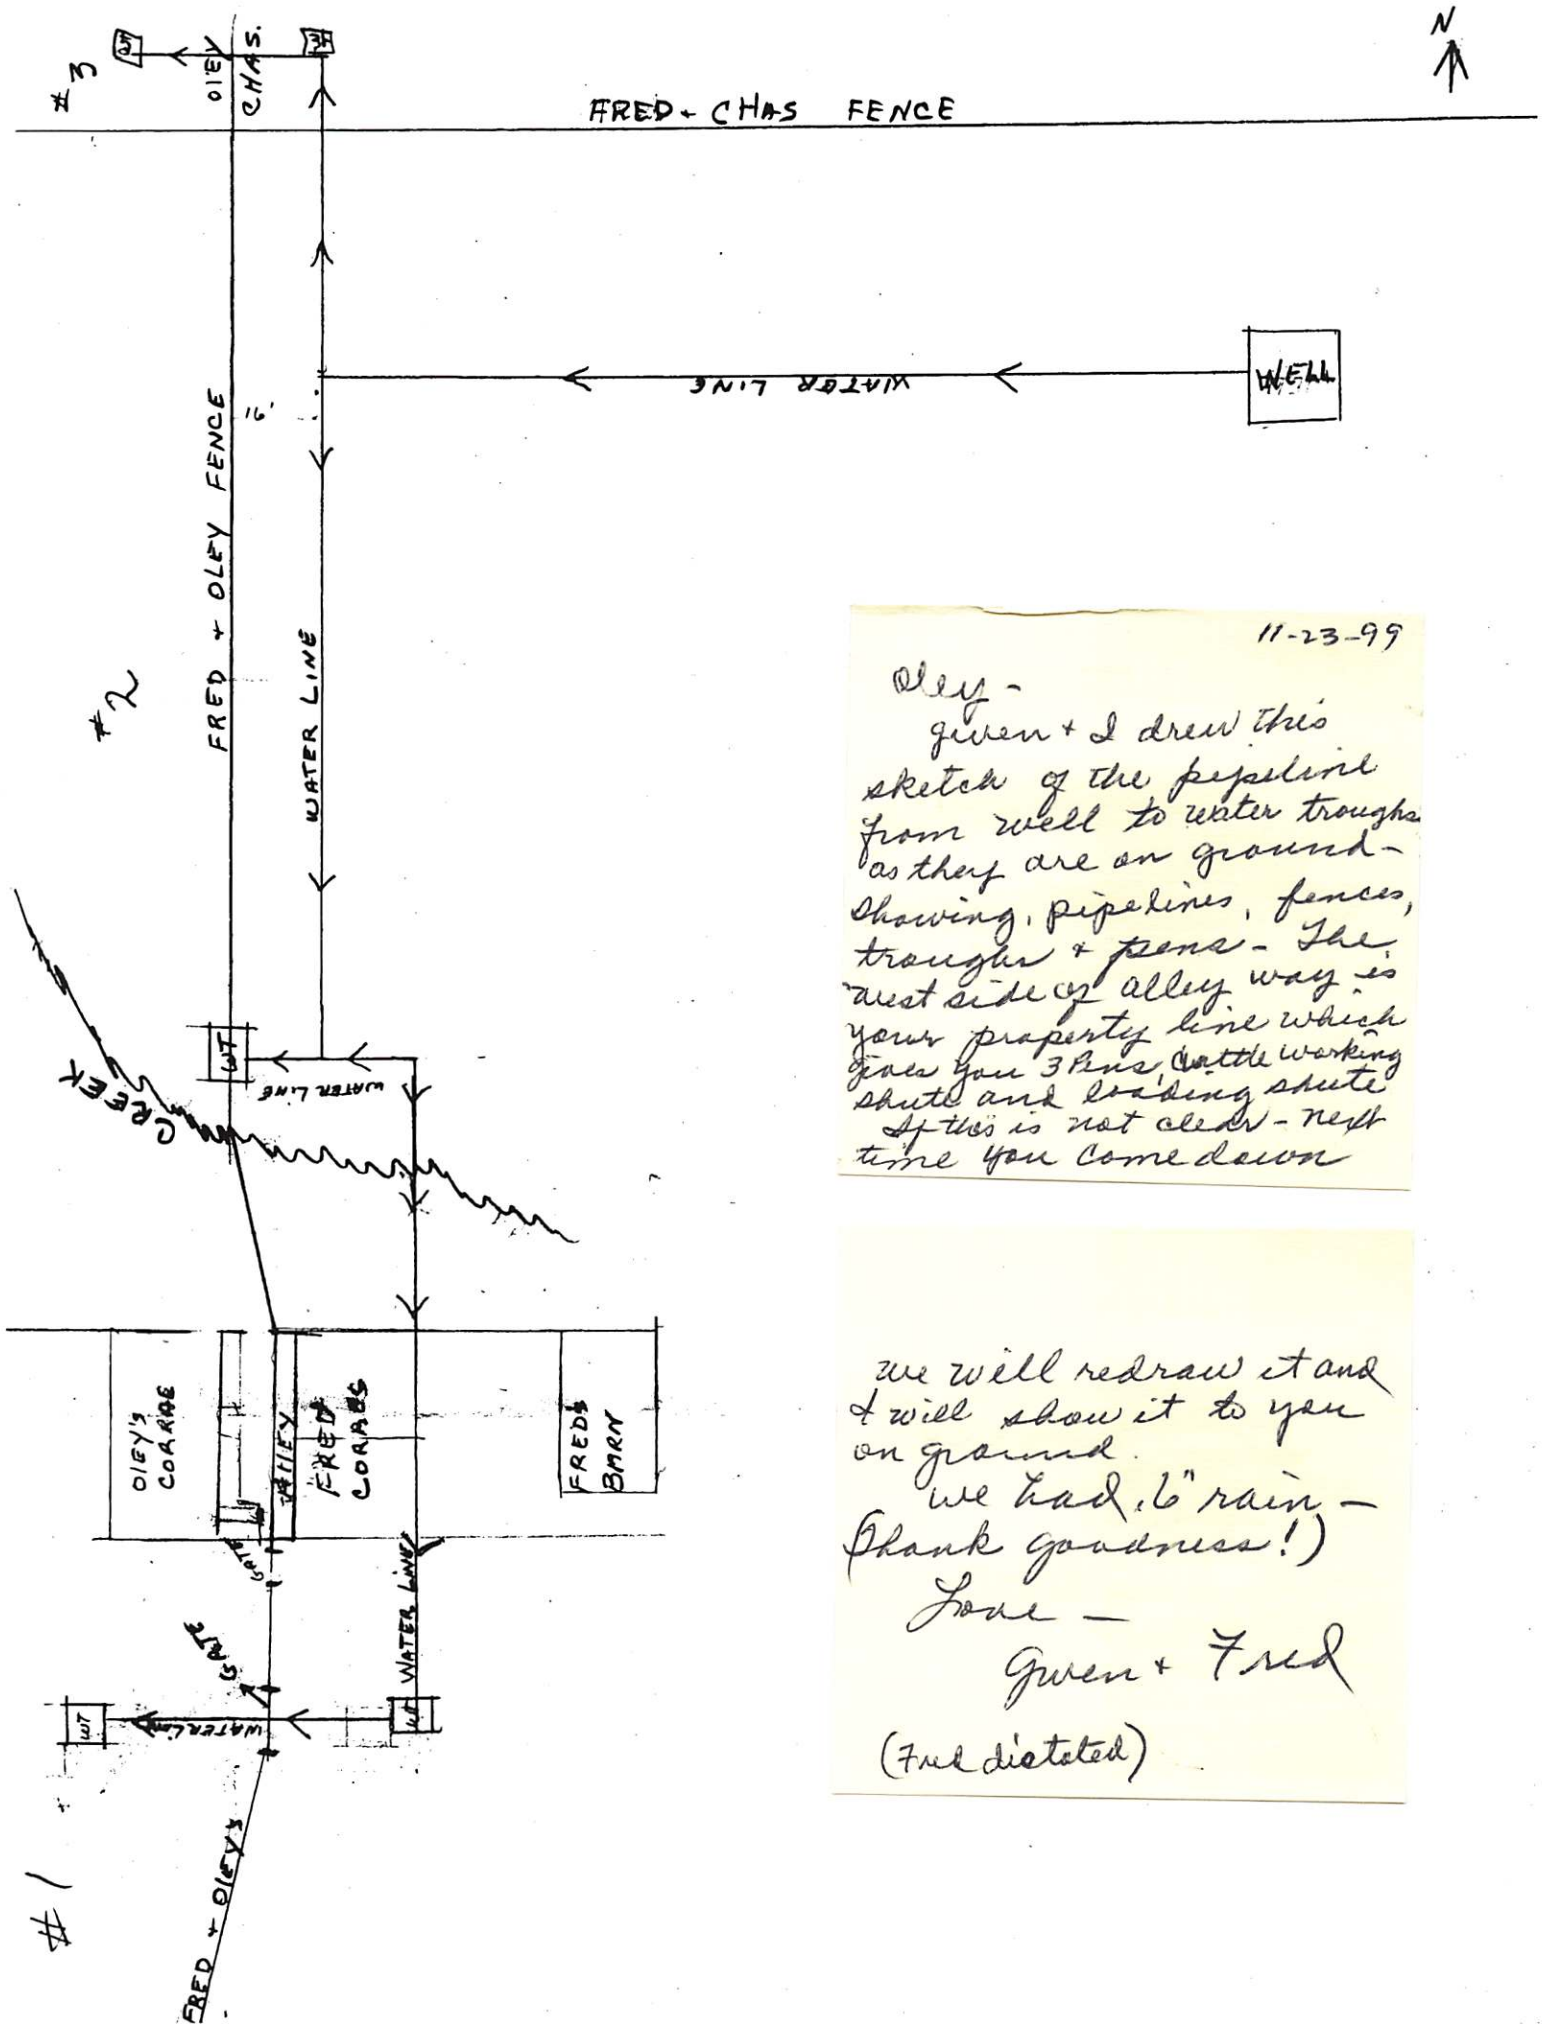 N
#3
WT
OlEY
CHAS.
WT
FRED + CHAS FENCE
WELL
WATER LINE
16'
FRED + OLEY FENCE
WATER LINE
#2
WT
WATER LINE
CREEK
OlEY'S
CORRAE
AllEY
FRED
CORRALS
FREDS
BARN
GATE
GATE
WATER LINE
WT
WATERLine
WT
#1
FRED + OlEYS
11-23-99
Oley -
Gwen + I drew this
sketch of the pipeline
from well to water troughs
as they are on ground -
showing, pipelines, fences,
troughs + pens - The
west side of alley way is
your property line which
gives you 3 Pens, Cattle working
shute and loading shute
If this is not clear - next
time you come down
we will redraw it and
I will show it to you
on ground.
We had .6" rain -
(Thank goodness!)
Love -
Gwen + Fred
(Fred dictated)